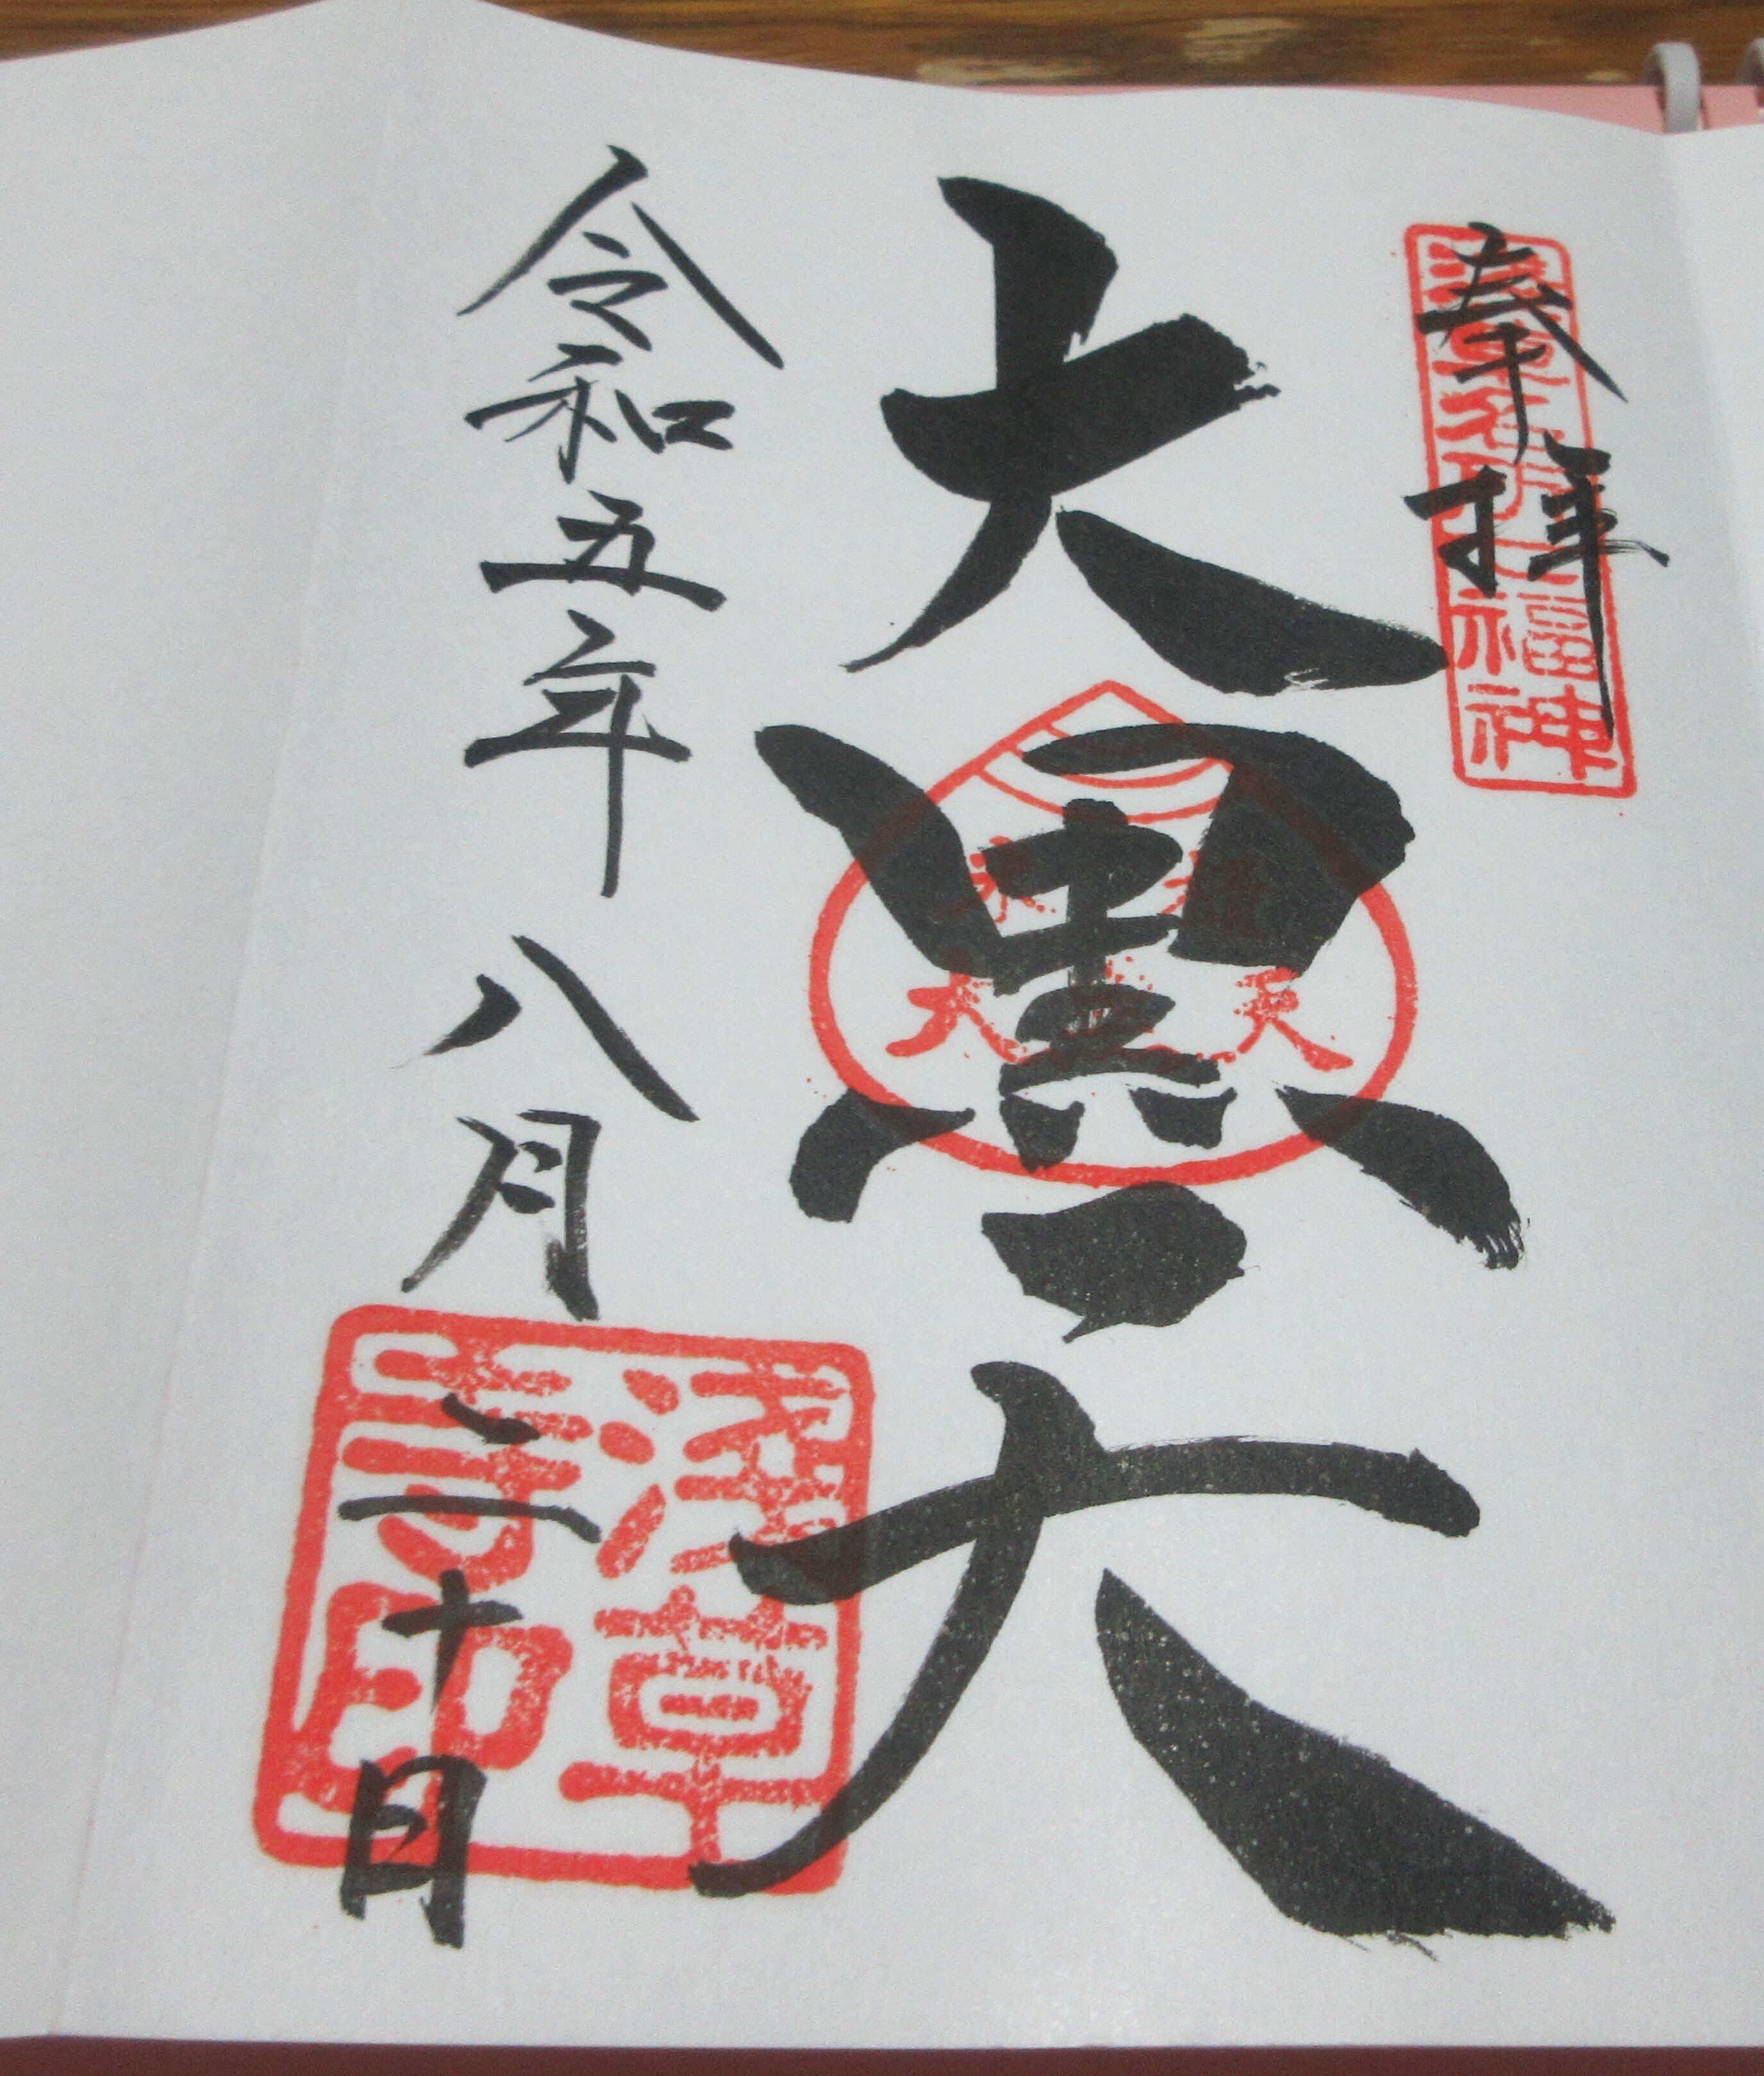 奉拝
浅草名所七福神
大黒天
大黒天
令和五年八月二十日
浅草寺印